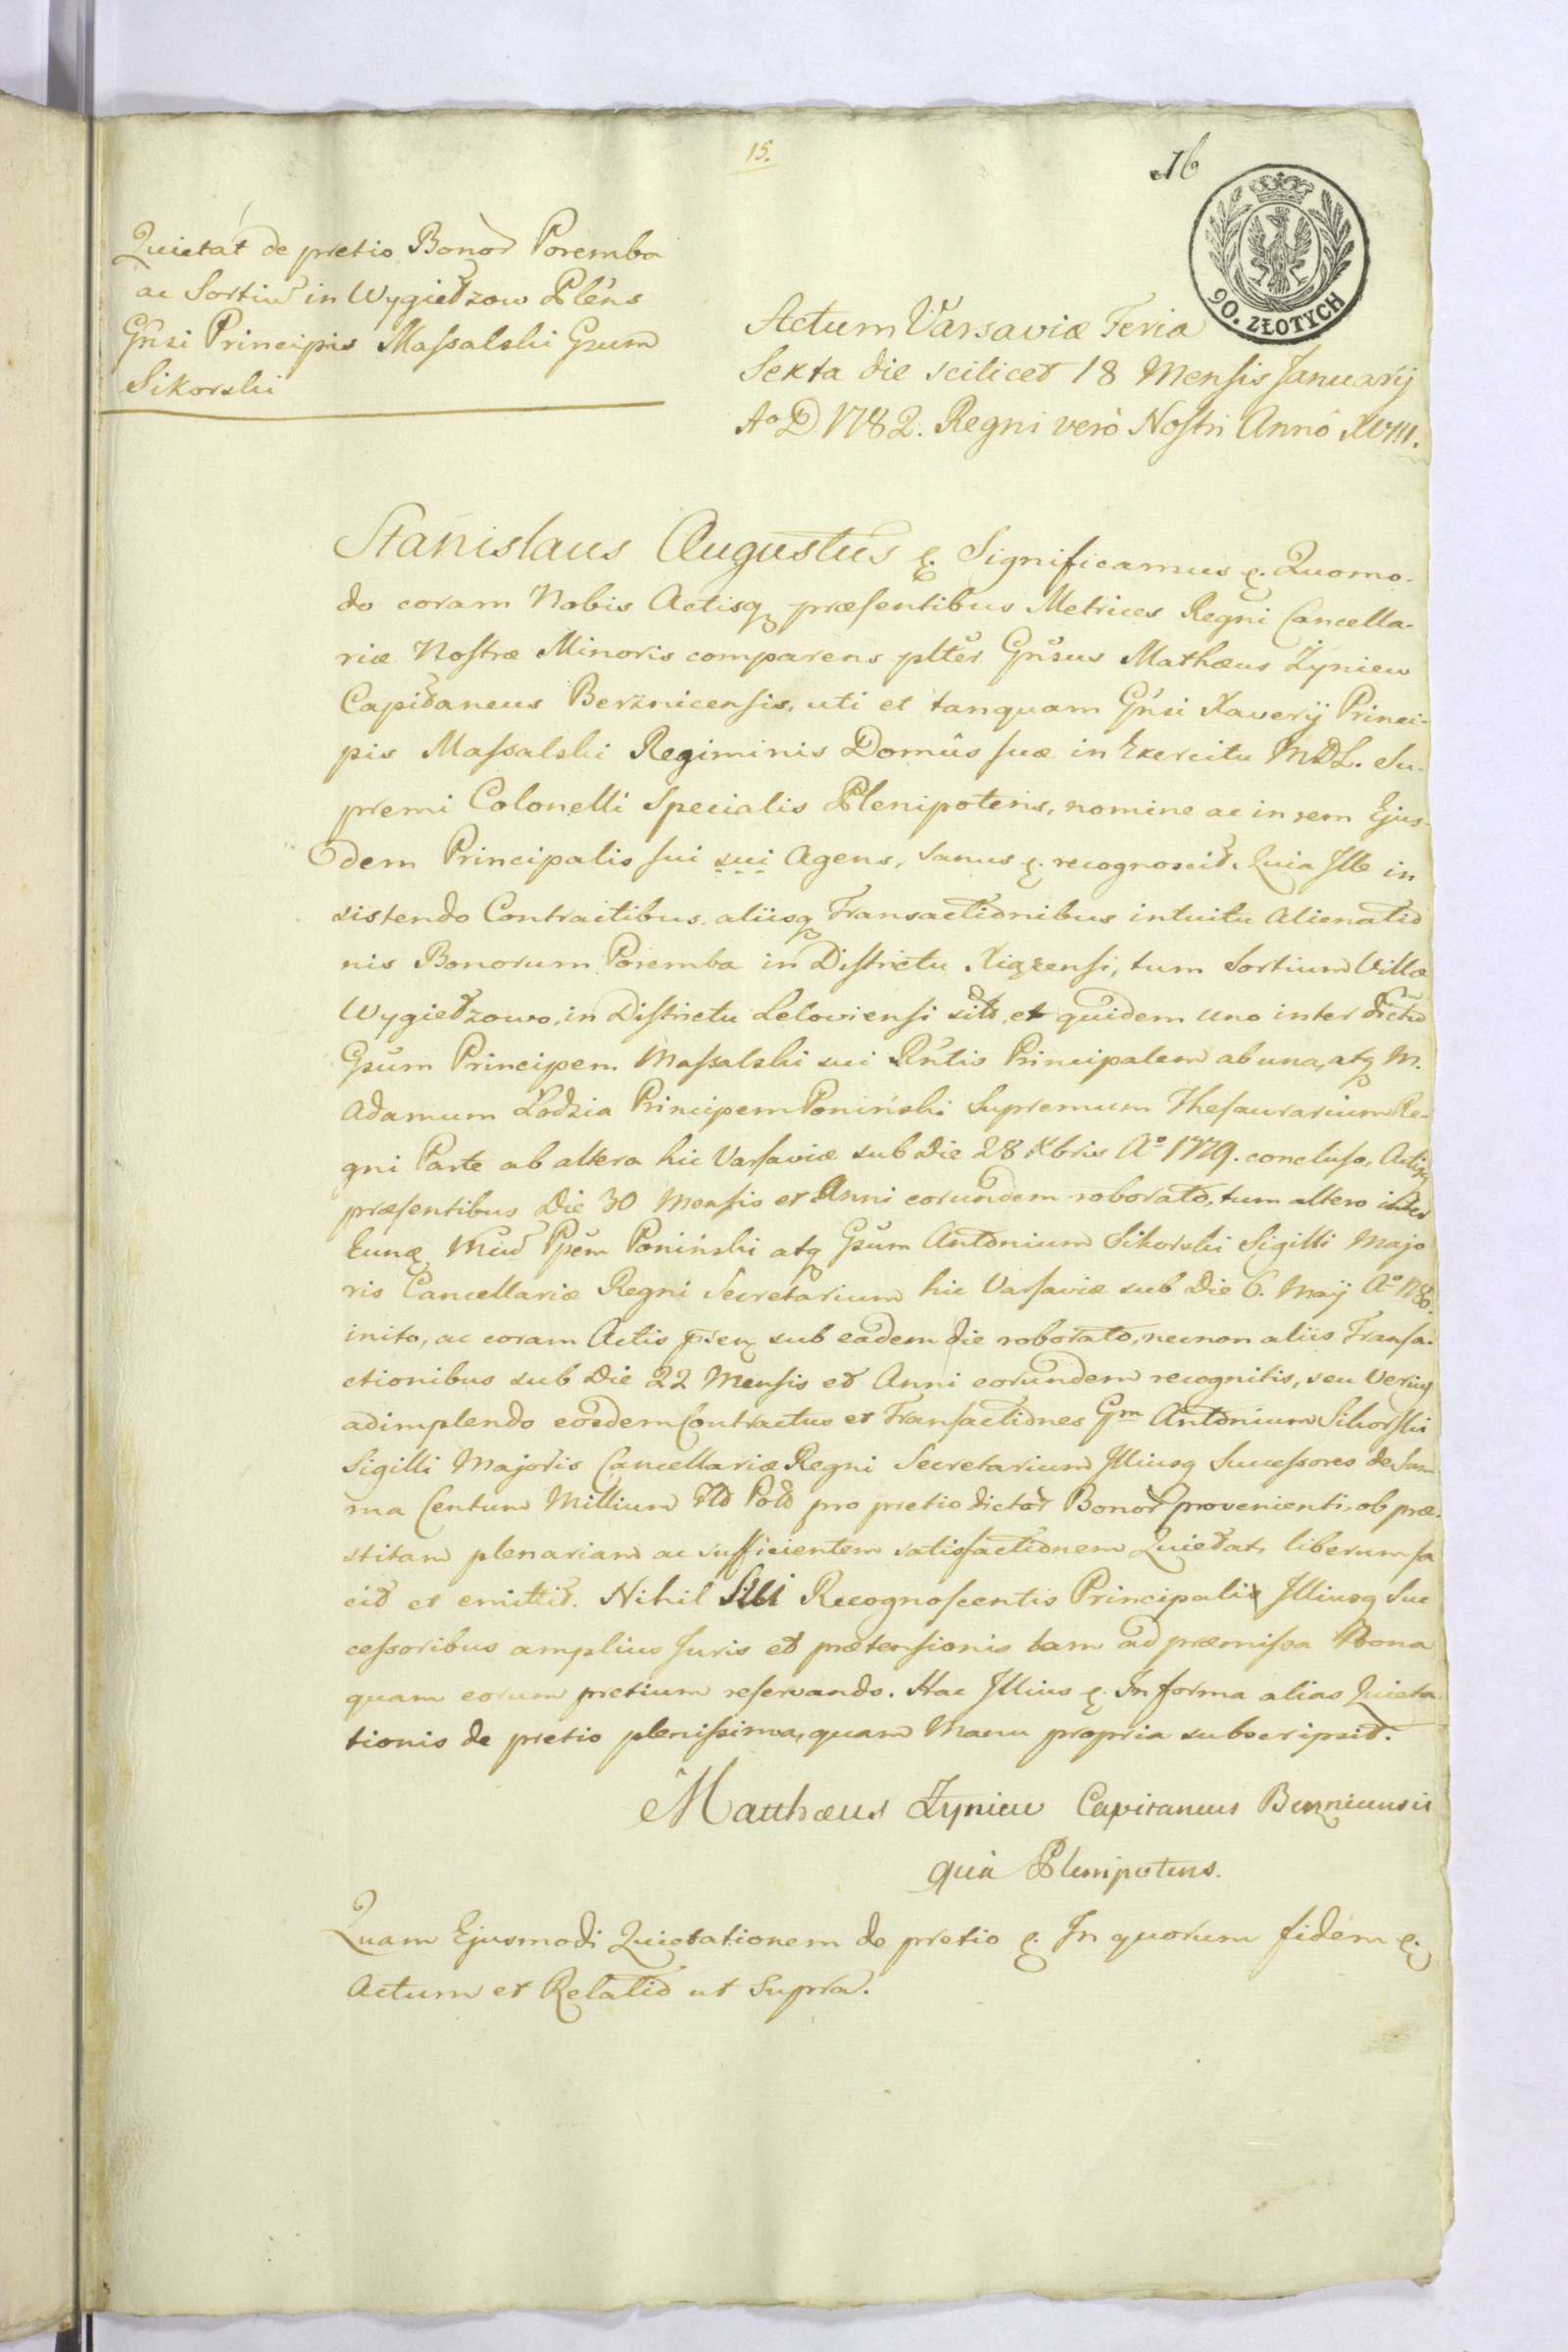 15.
16
90. ZŁOTYCH
Quietat de pretio Bonor Poremba
ac Sortiu in Wygiedzow Plens
Gnsi Principis Massalski Gsum
Sikorski
Actum Varsaviæ Feria
Sexta die scilicet 18 Mensis Januarij
Ao D 1782. Regni verò Nostri Anno XVIII.
Stanislaus Augustus &. Significamus &. Quomo-
do coram Nobis Actisq præsentibus Metrices Regni Cancella-
riæ Nostræ Minoris comparens plter Gnsus Mathæus Zyniew
Capitaneus Berznicensis, uti et tanquam Gnsi Xaverij Princi-
pis Massalski Regiminis Domûs suæ in Exercitu MDL. Su-
premi Colonelli Specialis Plenipotens, nomine ac in rem Ejus-
dem Principalis sui sui Agens, sanus &. recognoscit. Quia Ille in
sistendo Contractibus aliisq Transactionibus intuitu Alienatio
nis Bonorum Poremba in Districtu Xiązensi, tum Sortium Villæ
Wygiedzowo, in Districtu Leloviensi sito, et quidem uno inter dictu
Gsum Principem Massalski sui Rntis Principalem ab una, atq M.
Adamum Lodzia Principem Poniński Supremum Thesaurarium Re-
gni Parte ab altera hic Varsaviæ sub die 28 Xbris Ao 1779. concluso, Actisq
præsentibus die 30 Mensis et Anni eorundem roborato, tum altero inter
Eunq Mcu Ppem Poniński atq Gsum Antonium Sikorski Sigilli Majo
ris Cancellariæ Regni Secretarium hic Varsaviæ sub die 6. Maij Ao 1780.
inito, ac coram Actis prsen sub eadem die roborato, necnon aliis Transa-
ctionibus sub die 22 Mensis et Anni eorundem recognitis, seu verius
adimplendo eosdem Contractus et Transactiones Gm Antonium Sikorski
Sigilli Majoris Cancellariæ Regni Secretarium Illiusq Successores de Sum
ma Centum Millium Flo Polo pro pretio dictor Bonor provenienti, ob præ-
stitam plenariam ac sufficientem satisfactionem Quietat, liberum fa
cit et emittit. Nihil Sibi Recognoscentis Principali Illiusq Suc
cessoribus amplius Juris et prætensionis tam ad præmissa Bona
quam eorum pretium reservando. Hac Illius &. In forma alias Quieta
tionis de pretio plenissima, quam Manu propria subscripsit.
Matthæus Zyniew Capitaneus Berznicensis
quà Plenipotens.
Quam Ejusmodi Quietationem de pretio &. In quorum fidem &.
Actum et Relatio ut Supra.